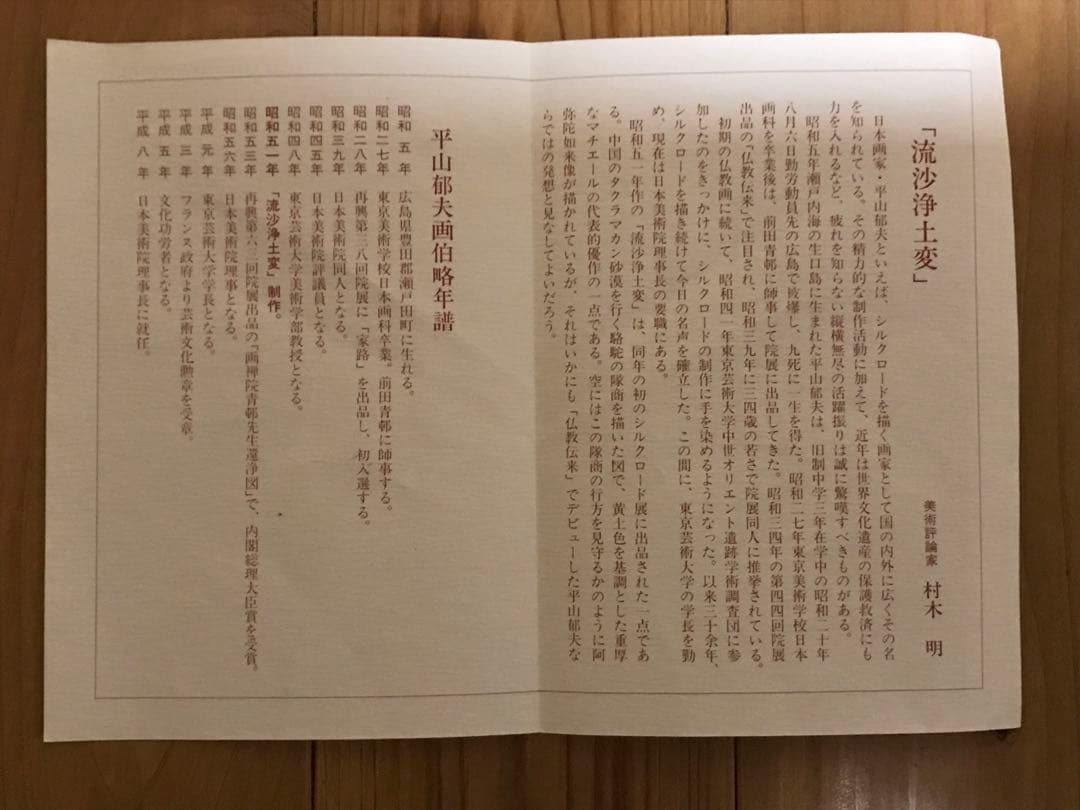 「流沙浄土変」
美術評論家　村木　明
日本画家・平山郁夫といえば、シルクロードを描く画家として国の内外に広くその名
を知られている。その精力的な制作活動に加えて、近年は世界文化遺産の保護救済にも
力を入れるなど、疲れを知らない縦横無尽の活躍振りは誠に驚嘆すべきものがある。
昭和五年瀬戸内海の生口島に生まれた平山郁夫は、旧制中学三年在学中の昭和二十年
八月六日勤労動員先の広島で被爆し、九死に一生を得た。昭和二七年東京美術学校日本
画科を卒業後は、前田青邨に師事して院展に出品してきた。昭和三四年の第四四回院展
出品の「仏教伝来」で注目され、昭和三九年に三四歳の若さで院展同人に推挙されている。
初期の仏教画に続いて、昭和四一年東京芸術大学中世オリエント遺跡学術調査団に参
加したのをきっかけに、シルクロードの制作に手を染めるようになった。以来三十余年、
シルクロードを描き続けて今日の名声を確立した。この間に、東京芸術大学の学長を勤
め、現在は日本美術院理事長の要職にある。
昭和五一年作の「流沙浄土変」は、同年の初のシルクロード展に出品された一点であ
る。中国のタクラマカン砂漠を行く駱駝の隊商を描いた図で、黄土色を基調とした重厚
なマチエールの代表的優作の一点である。空にはこの隊商の行方を見守るかのように阿
弥陀如来像が描かれているが、それはいかにも「仏教伝来」でデビューした平山郁夫な
らではの発想と見なしてよいだろう。
平山郁夫画伯略年譜
昭和　五　年　広島県豊田郡瀬戸田町に生れる。
昭和二七年　東京美術学校日本画科卒業。前田青邨に師事する。
昭和二八年　再興第三八回院展に「家路」を出品し、初入選する。
昭和三九年　日本美術院同人となる。
昭和四五年　日本美術院評議員となる。
昭和四八年　東京芸術大学美術学部教授となる。
昭和五一年　「流沙浄土変」制作。
昭和五三年　再興第六三回院展出品の「画禅院青邨先生還浄図」で、内閣総理大臣賞を受賞。
昭和五六年　日本美術院理事となる。
平成　元　年　東京芸術大学学長となる。
平成　三　年　フランス政府より芸術文化勲章を受章。
平成　五　年　文化功労者となる。
平成　八　年　日本美術院理事長に就任。